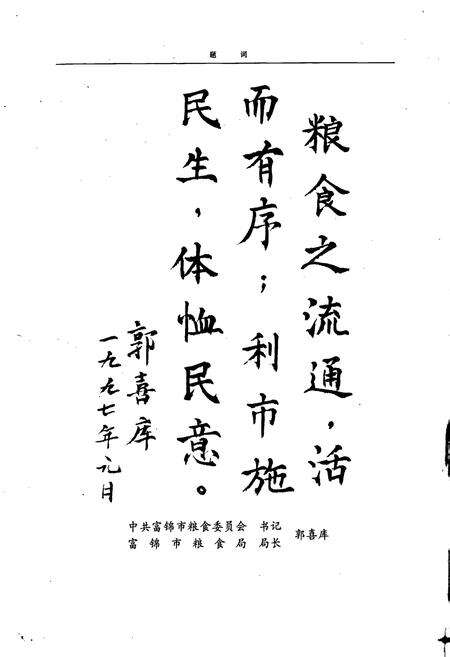 题 词
粮食之流通，活
而有序；利市施
民生，体恤民意。
郭喜库
一九九七年元月
中共富锦市粮食委员会 书记
富锦市粮食局 局长 郭喜库